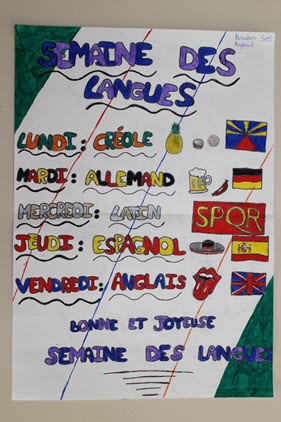 SEMAINE DES
LANGUES
LUNDI: CRÉOLE
MARDI: ALLEMAND
MERCREDI: LATIN
SPQR
JEUDI: ESPAGNOL
VENDREDI: ANGLAIS
BONNE ET JOYEUSE
SEMAINE DES LANGUES